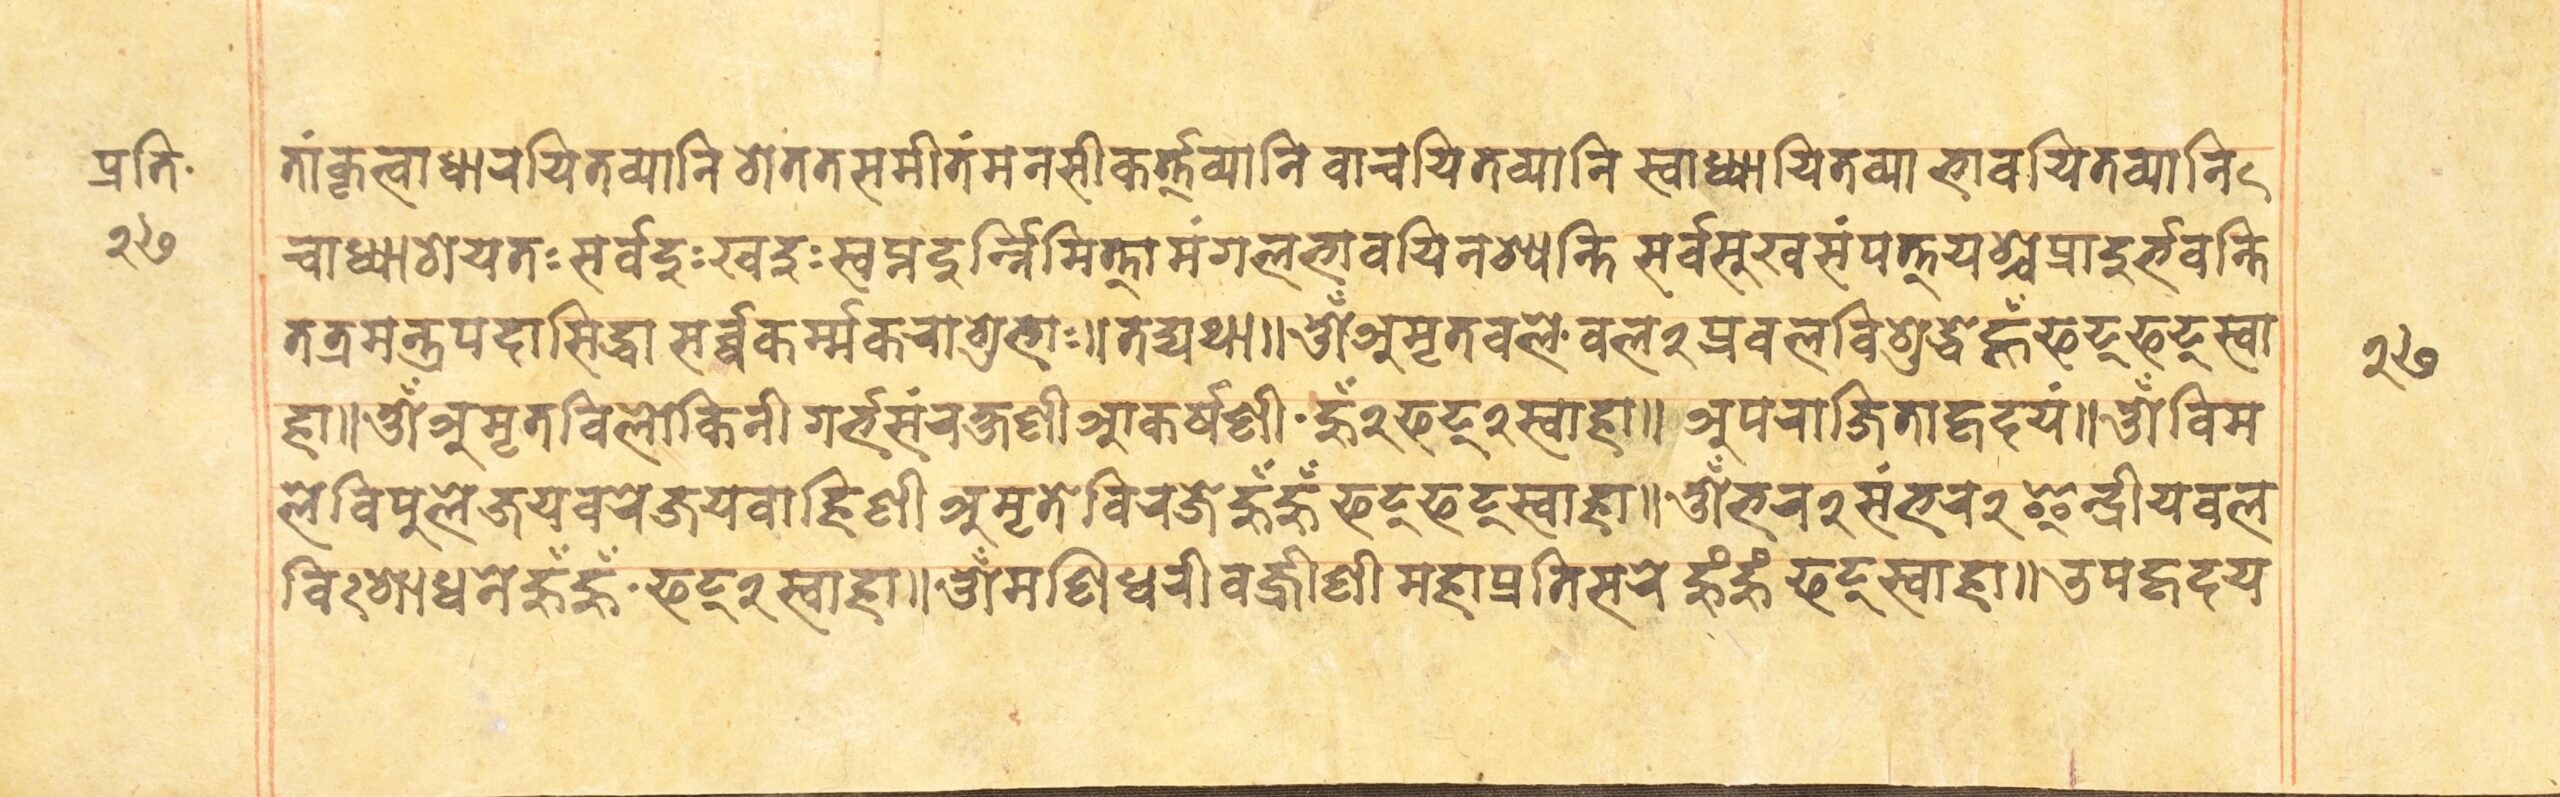 प्रति॰
२७
तां कृत्वा धारयितव्यानि शेततसमीतं मनसीकर्त्तव्यानि वाचयितव्यानि स्वाध्यायितव्या भावयितव्यानि
चाध्याशेयतः सर्वदुःखदुःस्वप्नदुर्न्निमित्तामंगलभावयिनश्यन्ति सर्वसुखसंपत्तयश्चे प्रादुर्भवन्ति
तत्र मन्त्रपदा सिद्धा सर्व्वकर्म्मकरा शुभाः॥ तद्यथा॥ ॐ अमृतवले वल२ प्रवलविशुद्धे ह्रूँ फट् फट् स्वा
हा॥ ॐ अमृतविलोकिनी गर्भसंरक्षणी आकर्षणी हूँ२ फट्२ स्वाहा॥ अपराजिताहृदयं॥ ॐ विम
ले विपुले जयवरे जयवाहिणी अमृते विरजे हूँ हूँ फट् फट् स्वाहा॥ ॐ भर२ संभर२ इन्द्रीयवल
विशोधने हूँ हूँ फट्२ स्वाहा॥ ॐ मणिधरी वज्रीणी महाप्रतिसरे हूं हूं फट् स्वाहा॥ उपहृदय
२७